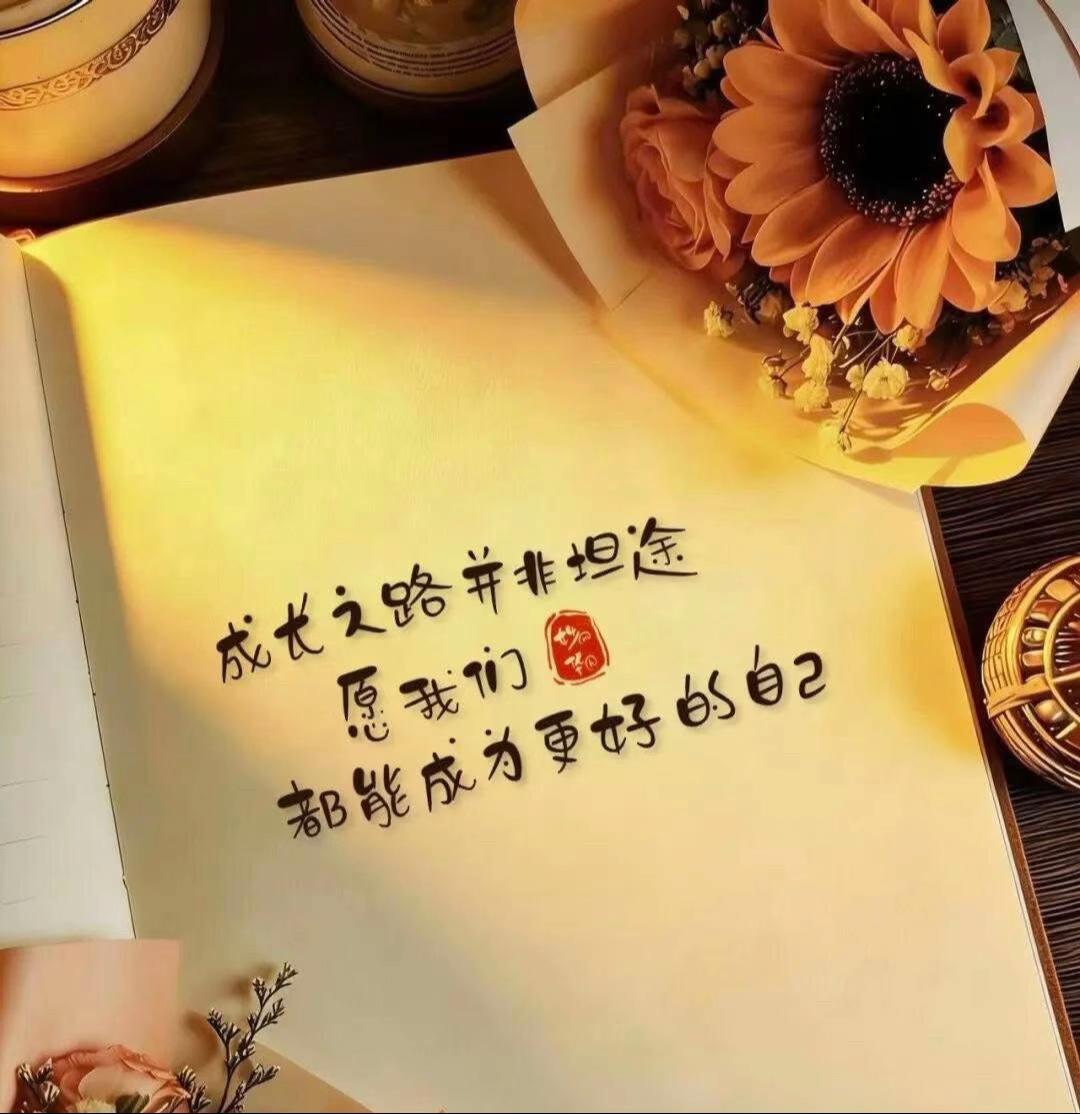 成长之路并非坦途
愿我们
都能成为更好的自己